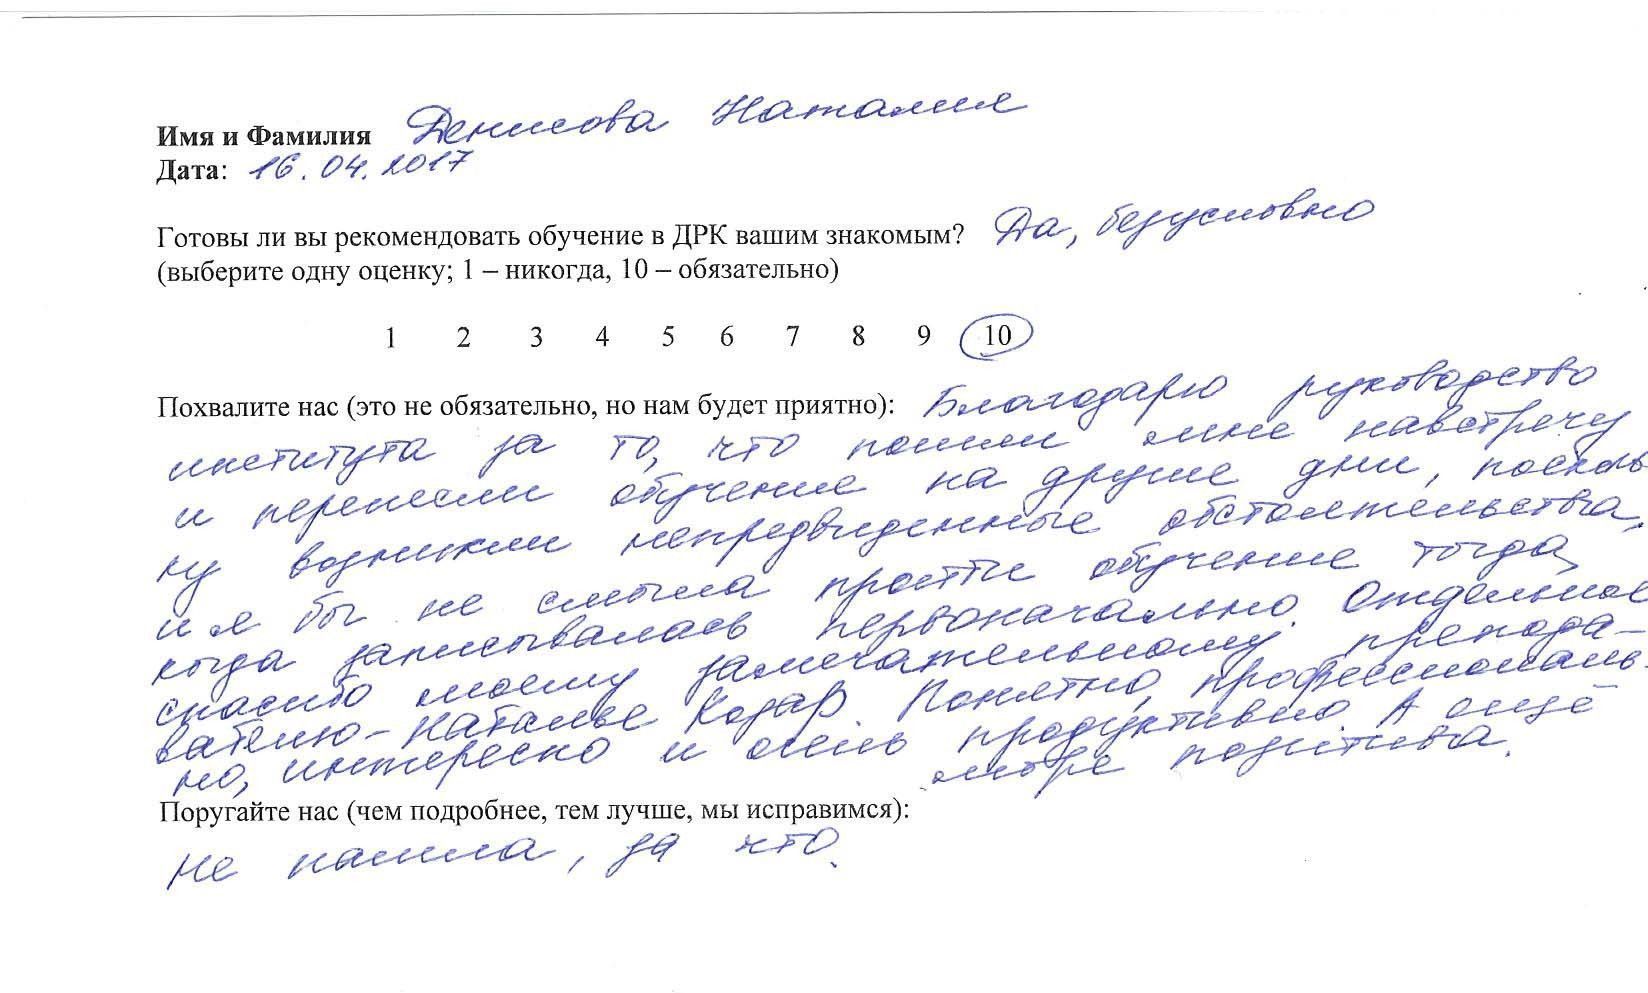 Имя и Фамилия Денисова Наталия
Дата: 16.04.2017
Готовы ли вы рекомендовать обучение в ДРК вашим знакомым? Да, безусловно
(выберите одну оценку; 1 – никогда, 10 – обязательно)
1 2 3 4 5 6 7 8 9 10
Похвалите нас (это не обязательно, но нам будет приятно): Благодарю руководство
института за то, что пошли мне навстречу
и перенесли обучение на другие дни, посколь
ку возникли непредвиденные обстоятельства,
и я бы не смогла пройти обучение тогда,
когда записывалась первоначально. Отдельное
спасибо моему замечательному препода-
вателю – Наталье Козар. Понятно, профессиональ-
но, интересно и очень продуктивно. А ещё
море позитива.
Поругайте нас (чем подробнее, тем лучше, мы исправимся):
Не нашла, за что.